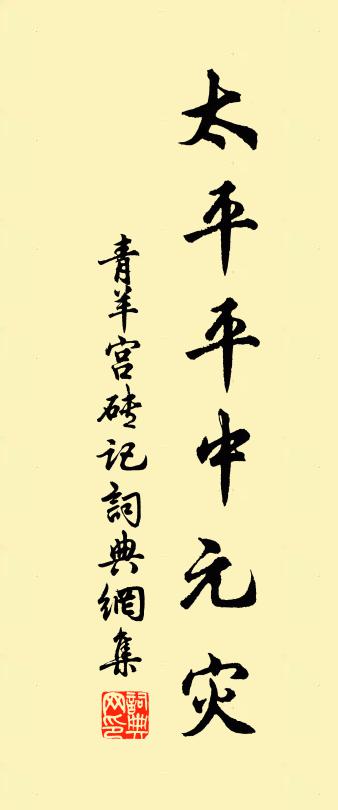 太平平中元灾
青羊宫砖记詞典網集
詞典网印